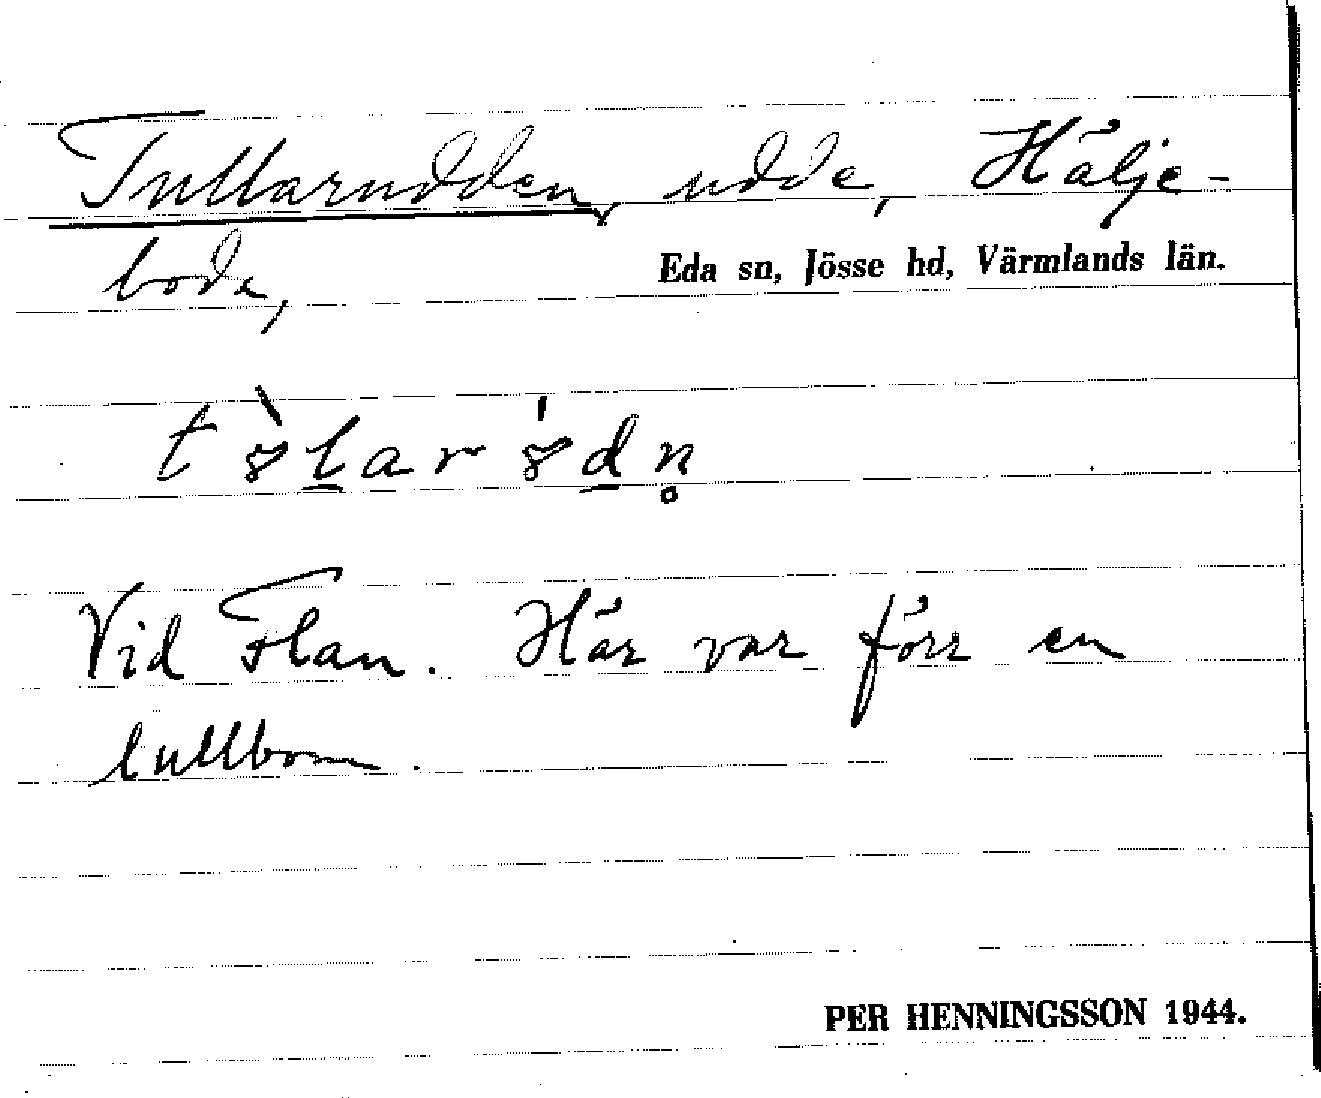 Tullarudden, udde, Hälje-
boda,
Eda sn, Jösse hd, Värmlands län.
t ꝏ̀ l̲ a r ꝏ́ d̲ n̥
Vid Flan. Här var förr en
tullbom.
PER HENNINGSSON 1944.